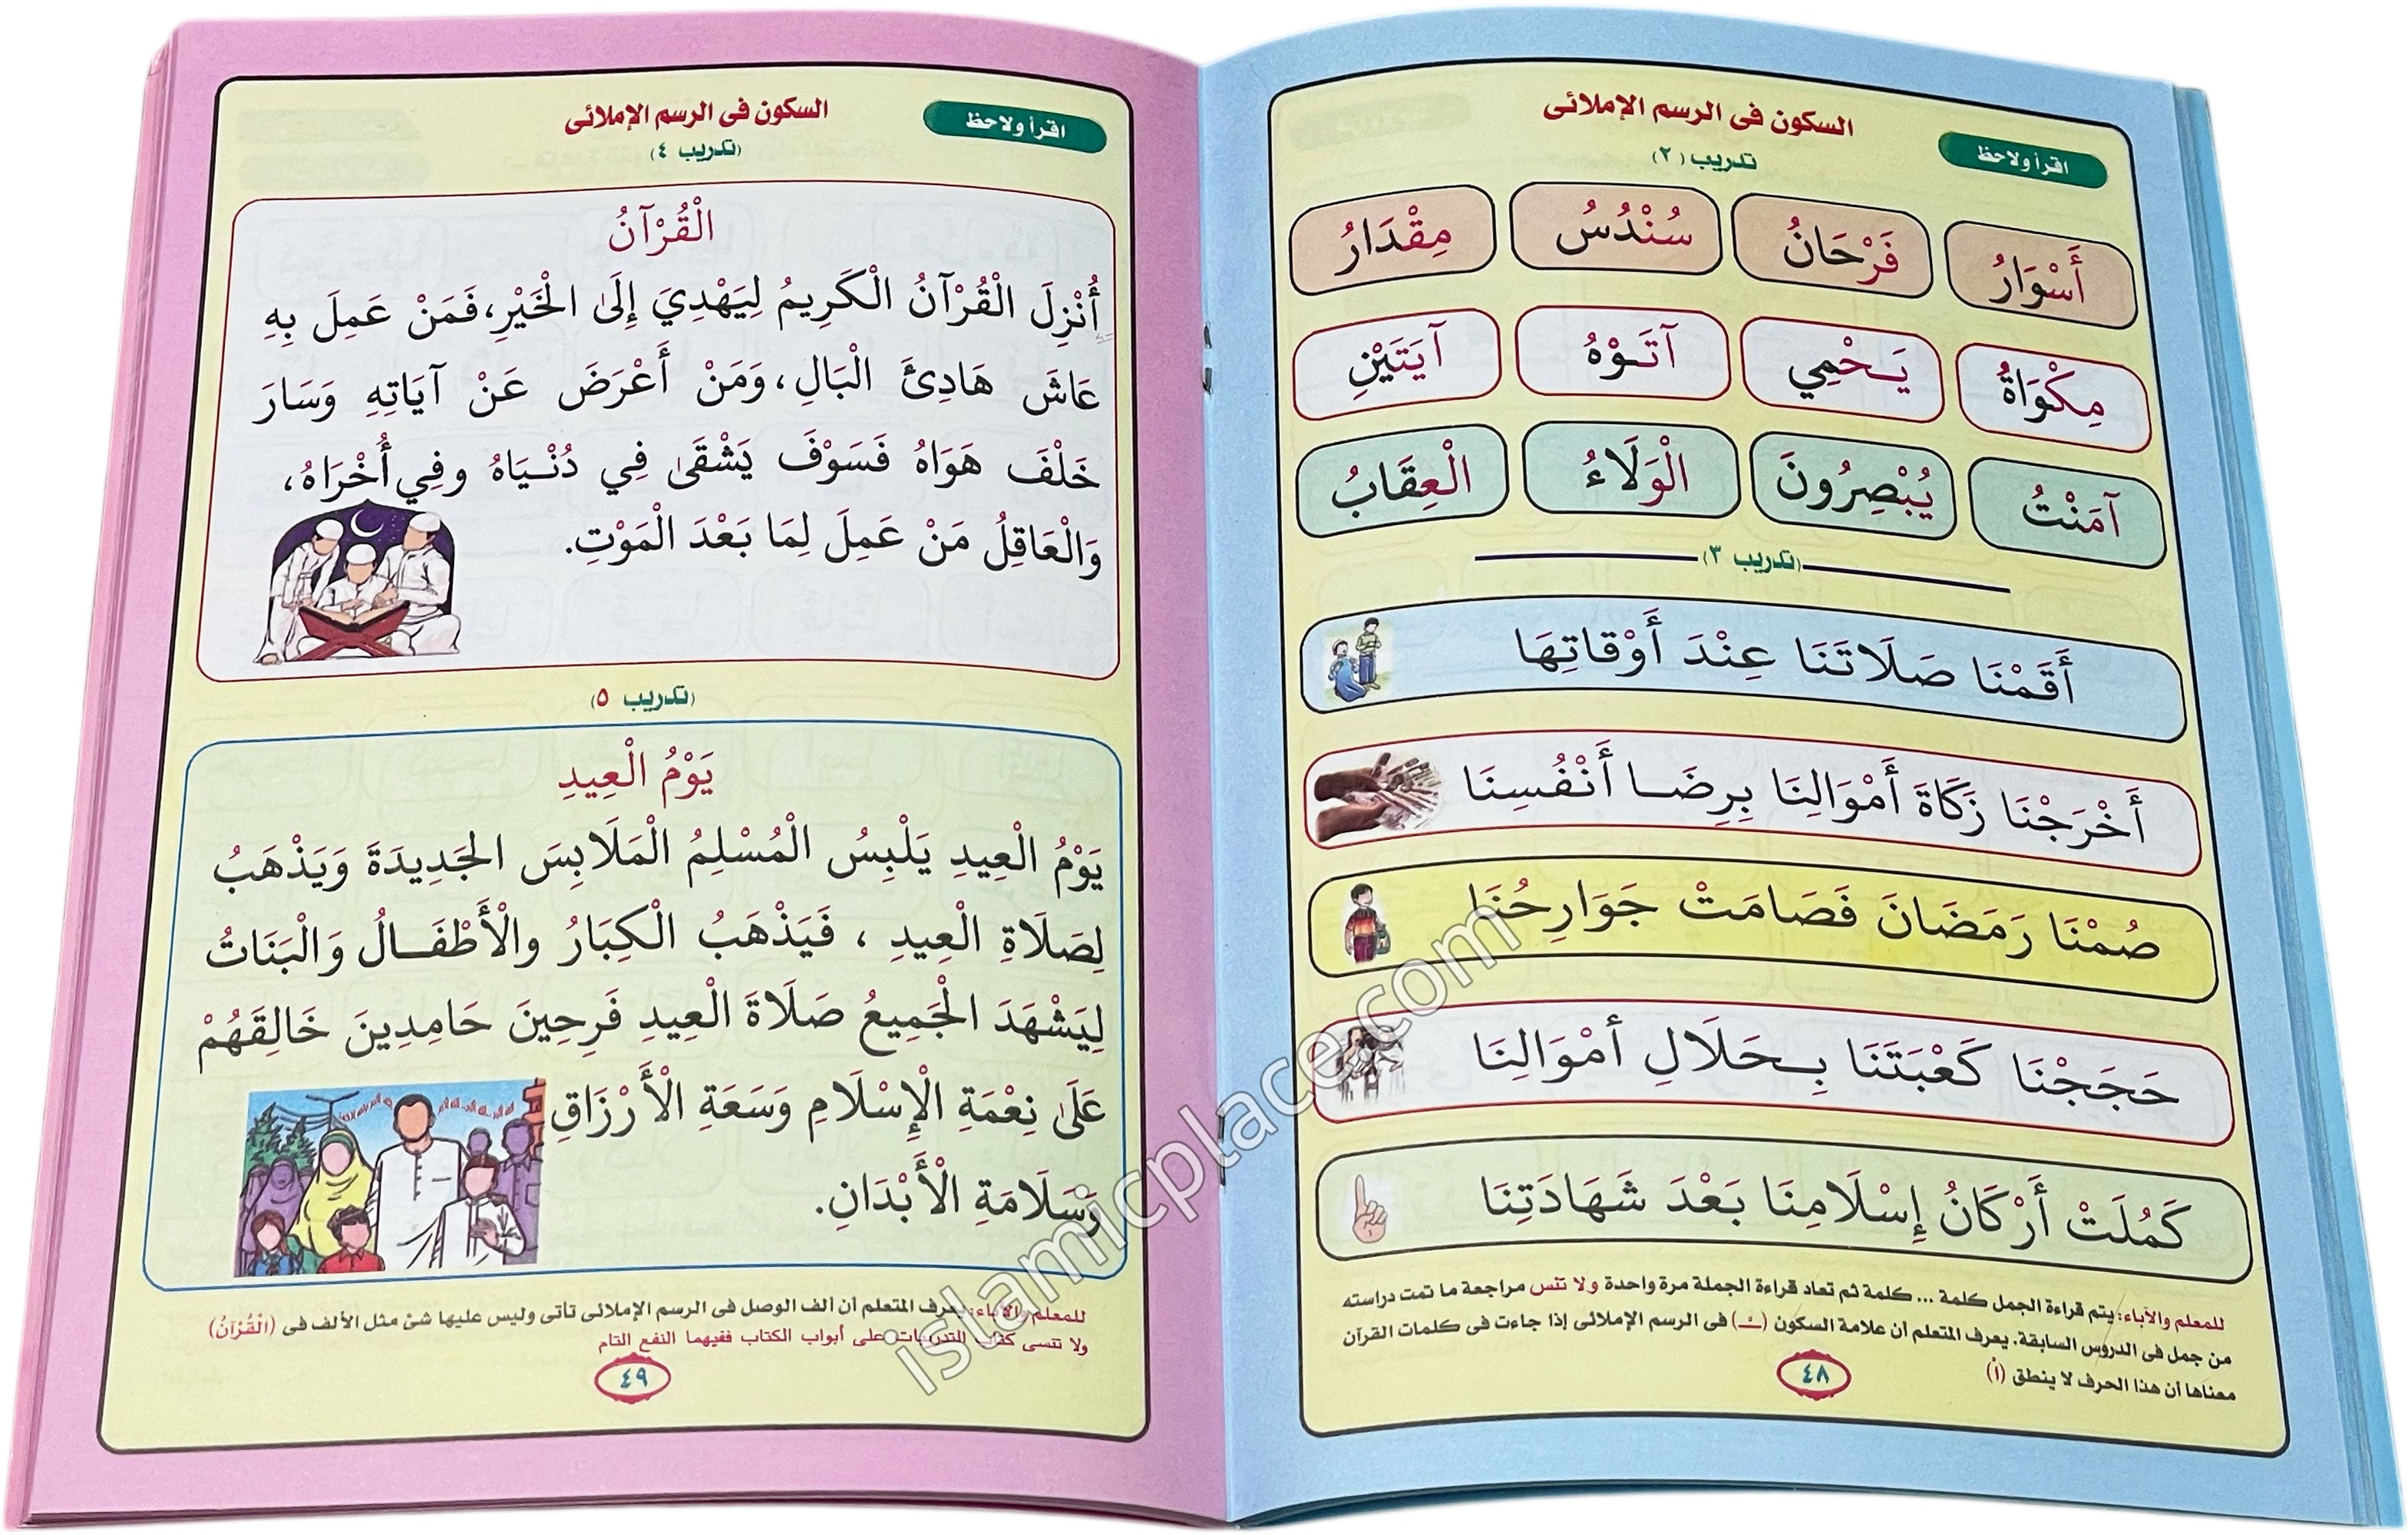 السكون فى الرسم الإملائى
اقرأ ولاحظ
تدريب (٢)
أَسْوَارُ فَرْحَانُ سُنْدُسُ مِقْدَارُ
مِكْوَاةُ يَـحْمِي آتَـوْهُ آيَتَيْنِ
آمَنْتُ يُبْصِرُونَ الْوَلَاءُ الْعِقَابُ
(تدريب ٣)
أَقَمْنَا صَلَاتَنَا عِنْدَ أَوْقَاتِهَا
أَخْرَجْنَا زَكَاةَ أَمْوَالِنَا بِرِضَـا أَنْفُسِنَا
صُمْنَا رَمَضَانَ فَصَامَتْ جَوَارِحُنَا
حَجَجْنَا كَعْبَتَنَا بِـحَلَالِ أمْوَالِنَا
كَمُلَتْ أَرْكَانُ إِسْلَامِنَا بَعْدَ شَهَادَتِنَا
للمعلم والآباء: يتم قراءة الجمل كلمة ... كلمة ثم تعاد قراءة الجملة مرة واحدة ولا تنس مراجعة ما تمت دراسته
من جمل فى الدروس السابقة. يعرف المتعلم أن علامة السكون (ـْـ) فى الرسم الإملائى إذا جاءت فى كلمات القرآن
معناها أن هذا الحرف لا ينطق (أْ)
٤٨
السكون فى الرسم الإملائى
اقرأ ولاحظ
(تدريب ٤)
الْقُرْآنُ
أُنْزِلَ الْقُرْآنُ الْكَرِيمُ لِيَهْدِيَ إِلَىٰ الْخَيْرِ، فَمَنْ عَمِلَ بِهِ
عَاشَ هَادِئَ الْبَالِ، وَمَنْ أَعْرَضَ عَنْ آيَاتِهِ وَسَارَ
خَلْفَ هَوَاهُ فَسَوْفَ يَشْقَىٰ فِي دُنْـيَاهُ وفِي أُخْرَاهُ،
وَالْعَاقِلُ مَنْ عَمِلَ لِمَا بَعْدَ الْمَوْتِ.
(تدريب ٥)
يَوْمُ الْعِيدِ
يَوْمُ الْعِيدِ يَلْبِسُ الْمُسْلِمُ الْمَلَابِسَ الجَدِيدَةَ وَيَذْهَبُ
لِصَلَاةِ الْعِيدِ ، فَيَذْهَبُ الْكِبَارُ والْأَطْفَـالُ وَالْبَنَاتُ
لِيَشْهَدَ الْجَمِيعُ صَلَاةَ الْعِيدِ فَرِحِينَ حَامِدِينَ خَالِقَهُمْ
عَلَىٰ نِعْمَةِ الْإِسْلَامِ وَسَعَةِ الْأَرْزَاقِ
وَسَلَامَةِ الْأَبْدَانِ.
للمعلم والآباء: يعرف المتعلم أن ألف الوصل فى الرسم الإملائى تأتى وليس عليها شئ مثل الألف فى (الْقُرْآنُ)
ولا تنسى كتاب التدريبات على أبواب الكتاب ففيهما النفع التام
٤٩
islamicplace.com